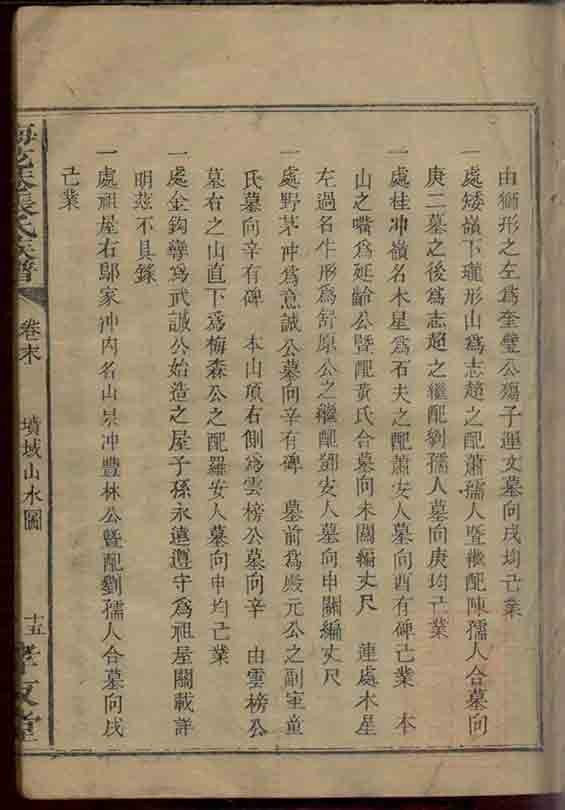 由獅形之左為奎璧公殤子運文墓向戌均己業
一處矮嶺下瓏形山為志趙之配蕭孺人暨繼配陳孺人合墓向
庚二墓之後為志趙之繼配劉孺人墓向庚均己業
一處桂冲嶺名木星為石夫之配蕭安人墓向酉有碑己業 本
山之嘴為延齡公暨配黃氏合墓向未關編丈尺 連處木星
左過名牛形為舒原公之繼配鄧安人墓向申關編丈尺
一處野茅冲為意誠公墓向辛有碑 墓前為殿元公之副室童
氏墓向辛有碑 本山項右側為雲榜公墓向辛 由雲榜公
墓右之山直下為梅森公之配羅安人墓向申均己業
一處金鈎彎為武誠公始造之屋子孫永遠遵守為祖屋關載詳
明茲不具錄
一處祖屋右鄔家冲內名山杲冲豐林公暨配劉孺人合墓向戌
己業
張氏族譜
卷末
墳域山水圖
十五
孝友堂